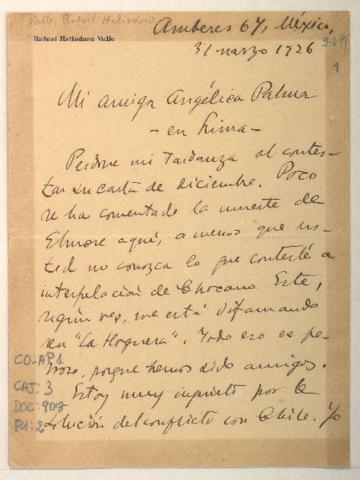 Valle, Rafael Heliodoro
Rafael Heliodoro Valle
Amberes 67, México,
31 marzo 1926
1
Mi amiga Angélica Palma
- en Lima -
Perdone mi tardanza al contes-
tar su carta de diciembre. Poco
se ha comentado la muerte de
Elmore aquí, a menos que us-
ted no conozca lo que contesté a
interpelación de Chocano. Este,
según veo, me está difamando
en "La Hoguera". Todo eso es pe-
noso, porque hemos sido amigos.
Estoy muy inquieto por la
solución del conflicto con Chile. Yo
CO-AP1
CAJ: 3
DOC: 909
PH: 2